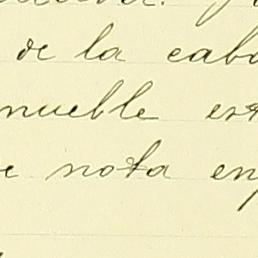 de la cab
mueble es
nota en